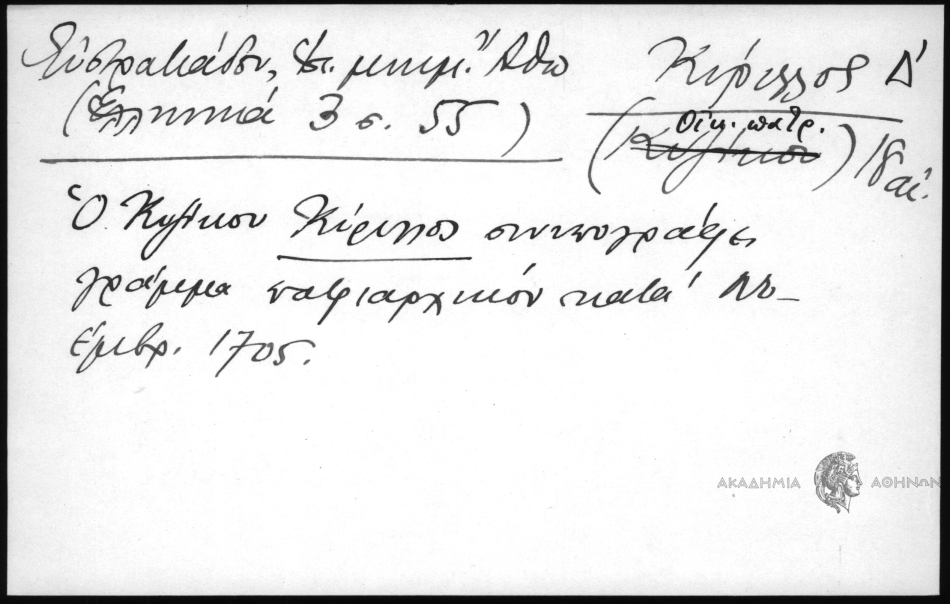 Εὐστρατιάδου, Ἱστ. μνημ. Ἄθω
(Ἑλληνικά 3 σ. 55)
Κύριλλος Δ΄
Οἰκ. πατρ.
(Κυζίκου) 18 αἰ.
Ὁ Κυζίκου Κύριλλος συνυπογράφει
γράμμα πατριαρχικόν κατά Νο-
έμβρ. 1705.
ΑΚΑΔΗΜΙΑ ΑΘΗΝΩΝ